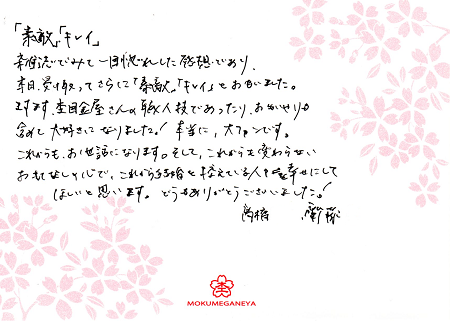 「素敵」「キレイ」
雑誌でみて一目惚れした感想であり、
本日、受け取ってさらに「素敵」、「キレイ」とおもいました。
ますます、杢目金屋さんの職人技であったり、おもいやりを
含めて大好きになりました！本当に、大ファンです。
これからも、お世話になります。そして、これからも変わらない
おもてなしと心で、これから結婚を控えている人を幸せにして
ほしいと思います。どうもありがとうございました！
高橋
MOKUMEGANEYA